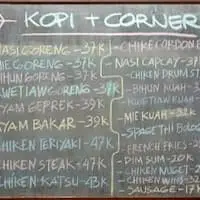 KOPI + CORNER
NASI GORENG - 37K
MIE GORENG - 37K
BIHUN GORENG - 37K
KWETIAW GORENG - 37K
AYAM GEPREK - 39K
AYAM BAKAR - 39K
CHIKEN TERIYAKI - 47K
CHIKEN STEAK - 47K
CHIKEN KATSU - 43K
- CHIKE CORDONE
- NASI CAPCAY - 37
- CHIKEN DRUM ST
- BIHUN KUAH - 3
- KWETIAW KUAH
- MIE KUAH - 32
- SPAGETHI BOLOG
- FRENCH FRIES - 2
- DIM SUM - 20K
- CHIKEN NUGET - 2
- CHIKEN WINGS - 32
- SAUSAGE - 17K